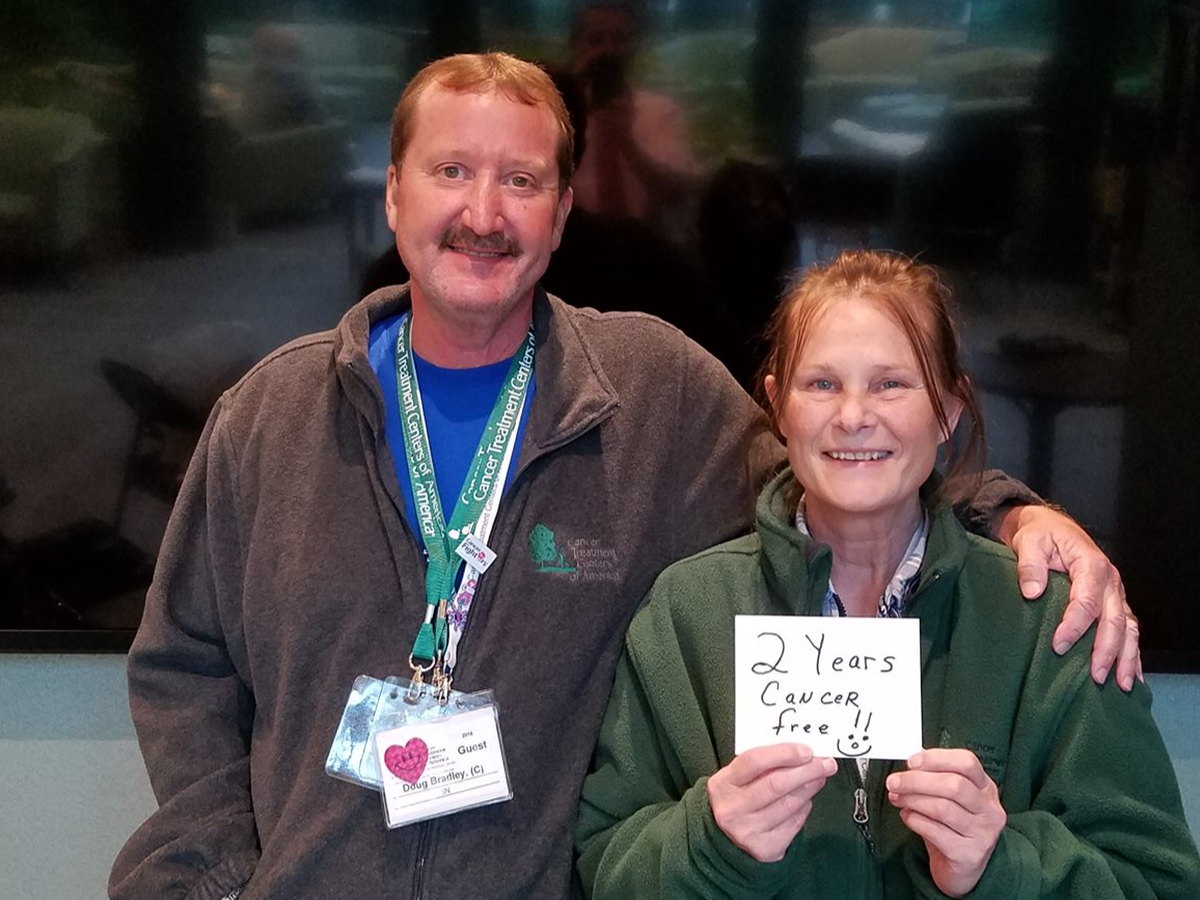 Cancer Treatment Centers of America
Cancer Treatment Centers of
Cancer
Fighters
Cancer
Treatment
Centers
of America
2018
Guest
Doug Bradley. (C)
IN
2 Years
Cancer
free !!
Cancer